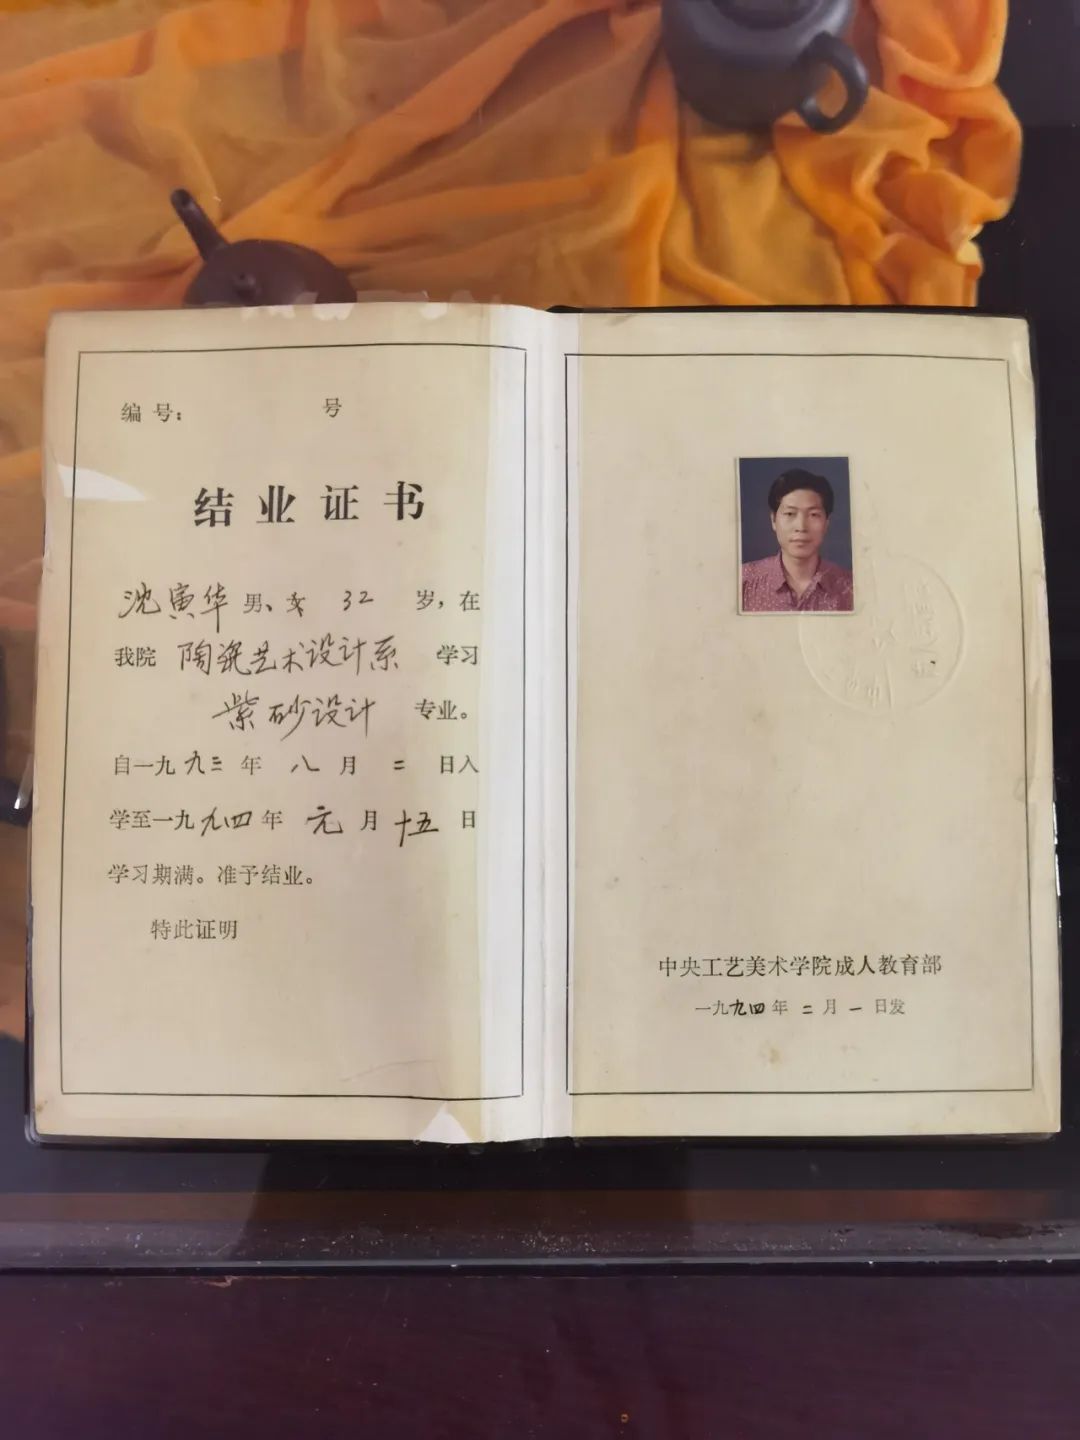 编号： 号
结业证书
沈寅华 男、女 32 岁，在
我院 陶瓷艺术设计系 学习
紫砂设计 专业。
自一九九三年 八 月 二 日入
学至一九九四年 元 月 十五 日
学习期满。准予结业。
特此证明
中央工艺美术学院成人教育部
一九九四年 二 月 一 日发